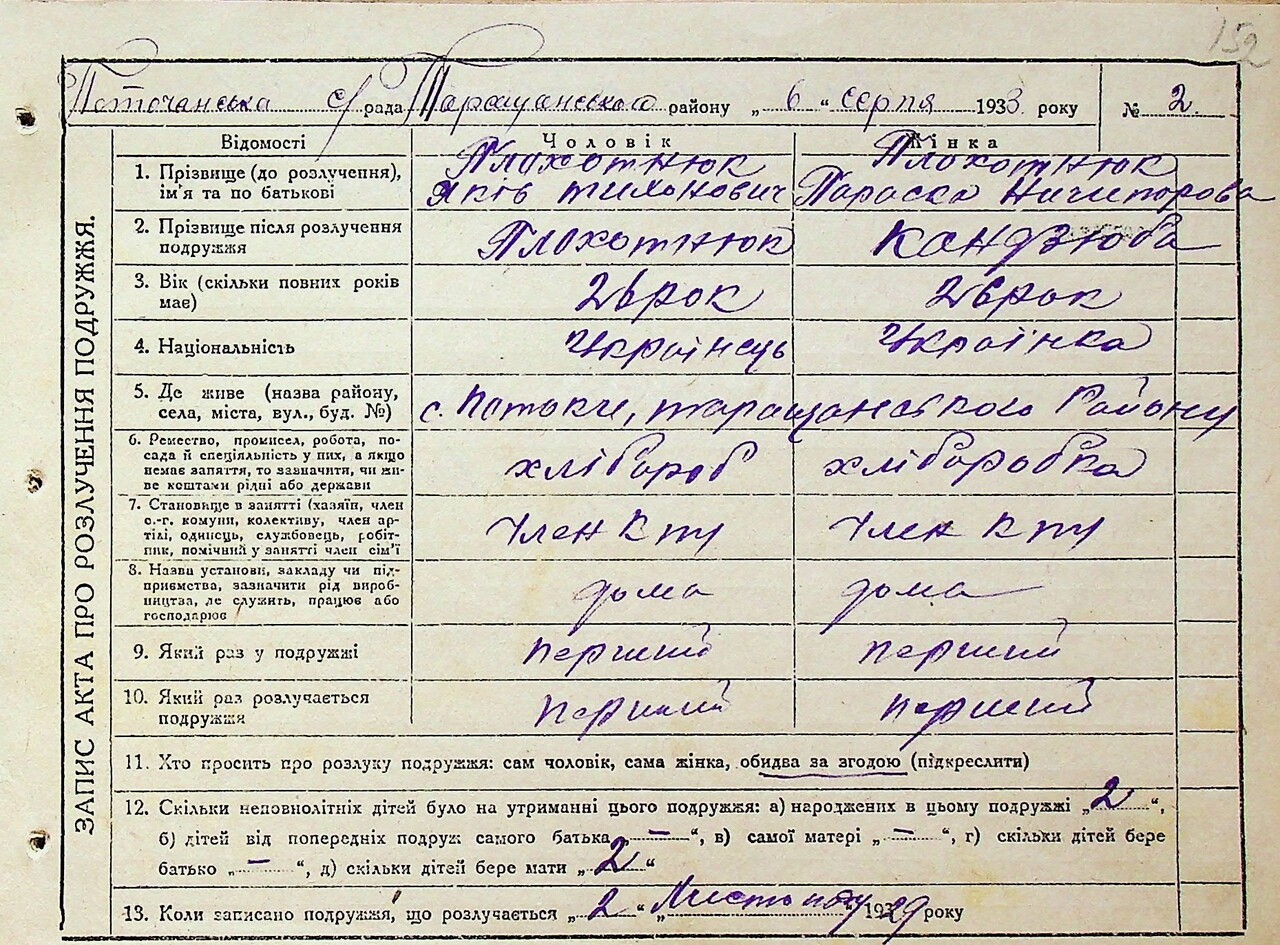 152
Поточанська с/рада Таращанського району „ 6 “ серпя 1933 року № 2
ЗАПИС АКТА ПРО РОЗЛУЧЕННЯ ПОДРУЖЖЯ.
Відомості Чоловік Жінка
1. Прізвище (до розлучення), Плохотнюк Плохотнюк
ім'я та по батькові Яків Тиханович Параска Ничипорова
2. Прізвище після розлучення Плохотнюк Кандзюба
подружжя
3. Вік (скільки повних років 28 рок 28 рок
має)
4. Національність Українець Українка
5. Де живе (назва району, с. Потоки, таращанського Району
села, міста, вул., буд. №)
6. Ремество, промисел, робота, по-
сада й спеціяльність у них, а якщо хлібороб хлібаробка
немає заняття, то зазначити, чи жи-
ве коштами рідні або держави
7. Становище в занятті (хазяїн, член
с.-г. комуни, колективу, член ар- Член Кпу Член Кпу
тілі, одинець, службовець, робіт-
ник, помічний у занятті член сім'ї
8. Назва установи, закладу чи під-
приємства, зазначити рід вироб- дома дома
ництва, де служить, працює або
господарює
9. Який раз у подружжі перший перший
10. Який раз розлучається перший перший
подружжя
11. Хто просить про розлуку подружжя: сам чоловік, сама жінка, обидва за згодою (підкреслити)
12. Скільки неповнолітніх дітей було на утриманні цього подружжя: а) народжених в цьому подружжі „ 2 “,
б) дітей від попередніх подруж самого батька „ — “, в) самої матері „ — “, г) скільки дітей бере
батько „ — “, д) скільки дітей бере мати „ 2 “
13. Коли записано подружжя, що розлучається „ 2 “ „ Листопаду “ 1929 року